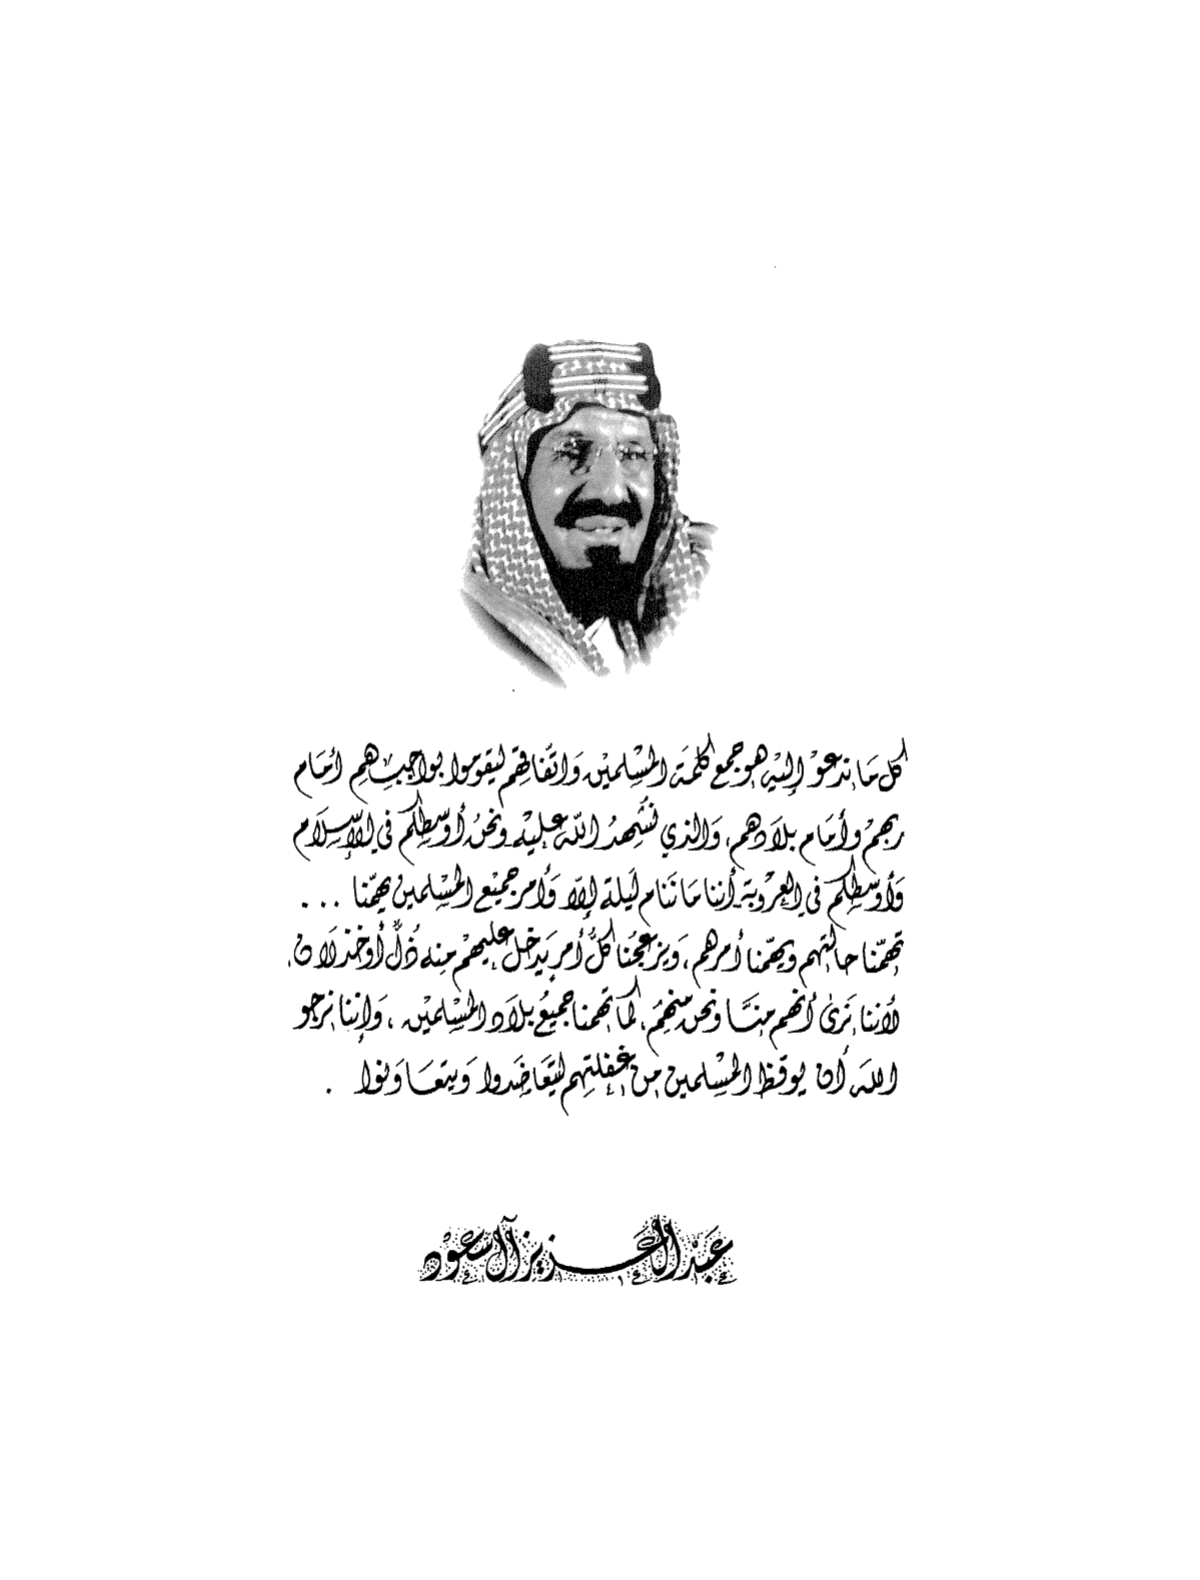 كل ما ندعو إليه هو جمع كلمة المسلمين واتفاقهم ليقوموا بواجبهم أمام
ربهم وأمام بلادهم، والذي نُشهدُ الله عليه ونحن أوسطكم في الإسلام
وأوسطكم في العروبة أننا ما ننام ليلة إلّا وأمر جميع المسلمين يهمّنا ...
تهمّنا حالتهم ويهمّنا أمرهم، ويزعجنا كلُّ أمر يدخل عليهم منه ذُلٌّ أو خذلان.
لأننا نرى أنهم منّا ونحن منهم، كما تهمنا جميعُ بلاد المسلمين، وإننا نرجو
الله أن يوقظ المسلمين من غفلتهم ليتعاضدوا ويتعاونوا .
عبد العزيز آل سعود